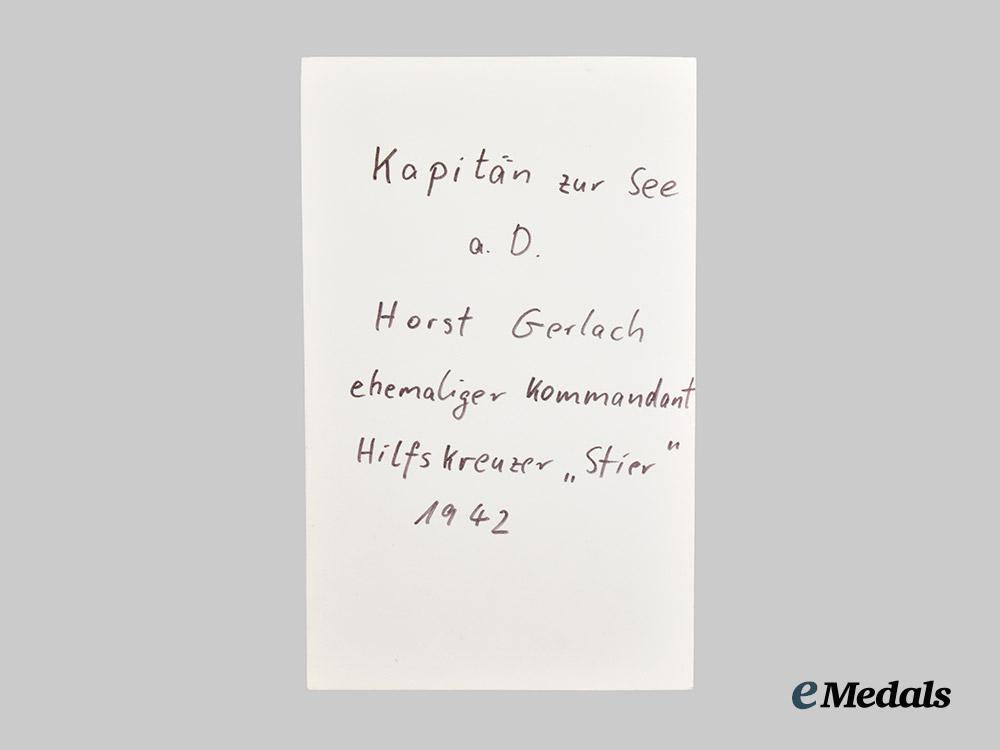 Kapitän zur See
a. D.
Horst Gerlach
ehemaliger Kommandant
Hilfskreuzer „Stier"
1942
eMedals